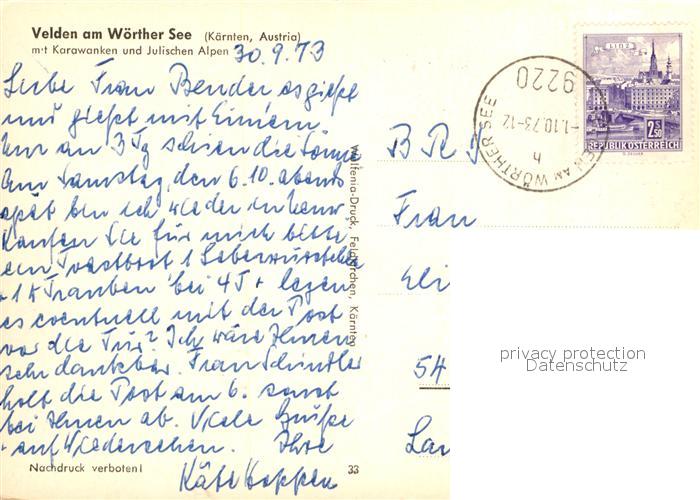 Velden am Wörther See (Kärnten, Austria)
mit Karawanken und Julischen Alpen 30.9.73
Liebe Frau Bender es gießt
und gießt mit Eimern.
Nur an 3 Tg schien die Sonne
Am Samstag, den 6.10. abends
spät bin ich wieder in
Kaufen Sie für mich bitte
ein Toastbrot 1 Leberwürstchen
+ 1 K Trauben bei 4T + legen
es eventuell mit der Post
vor die Tür? Ich wäre Ihnen
sehr dankbar. Frau Schindler
holt die Post am 6. sonst
bei Ihnen ab. Viele Grüße
+ auf Wiedersehen. Ihre
Käte Hoppen
Nachdruck verboten!
33
Wolfenia-Druck, Feldkirchen, Kärnten
LINZ
2.50
REPUBLIK ÖSTERREICH
9220
-1.10.73-12
h
AM WÖRTHER SEE
BRD
Frau
Eli
54
Lan
privacy protection
Datenschutz